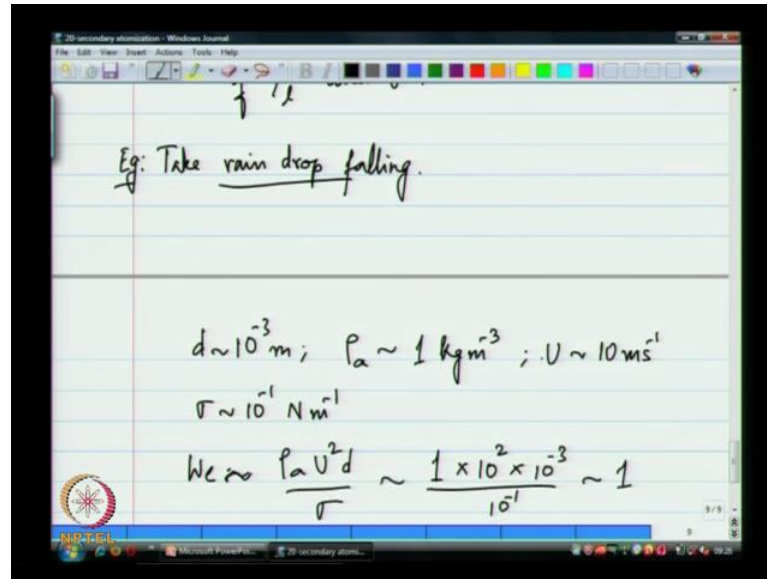 20-secondary atomization - Windows Journal
File Edit View Insert Actions Tools Help
Eg: Take rain drop falling.
d ~ 10⁻³ m; ρₐ ~ 1 kg m⁻³; U ~ 10 ms⁻¹
σ ~ 10⁻¹ N m⁻¹
We ~ ρₐ U² d / σ ~ 1 × 10² × 10⁻³ / 10⁻¹ ~ 1
9/9
9
NPTEL
Microsoft PowerPoi... 20-secondary atomi... 09:26